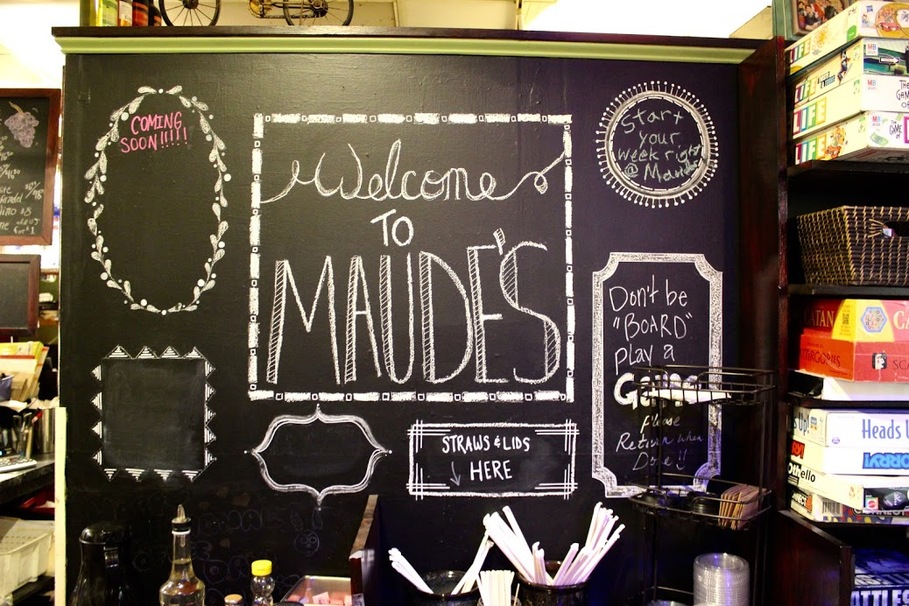 COMING
SOON!!!!!
Welcome
TO
MAUDE'S
Start
your
week right
@ Maudes
Don't be
"BOARD"
play a
Game
Please
Return when
Done
STRAWS & LIDS
HERE
LIFE
LIFE
LIFE
CATAN
Heads U
SORRY!
Othello
BATTLES